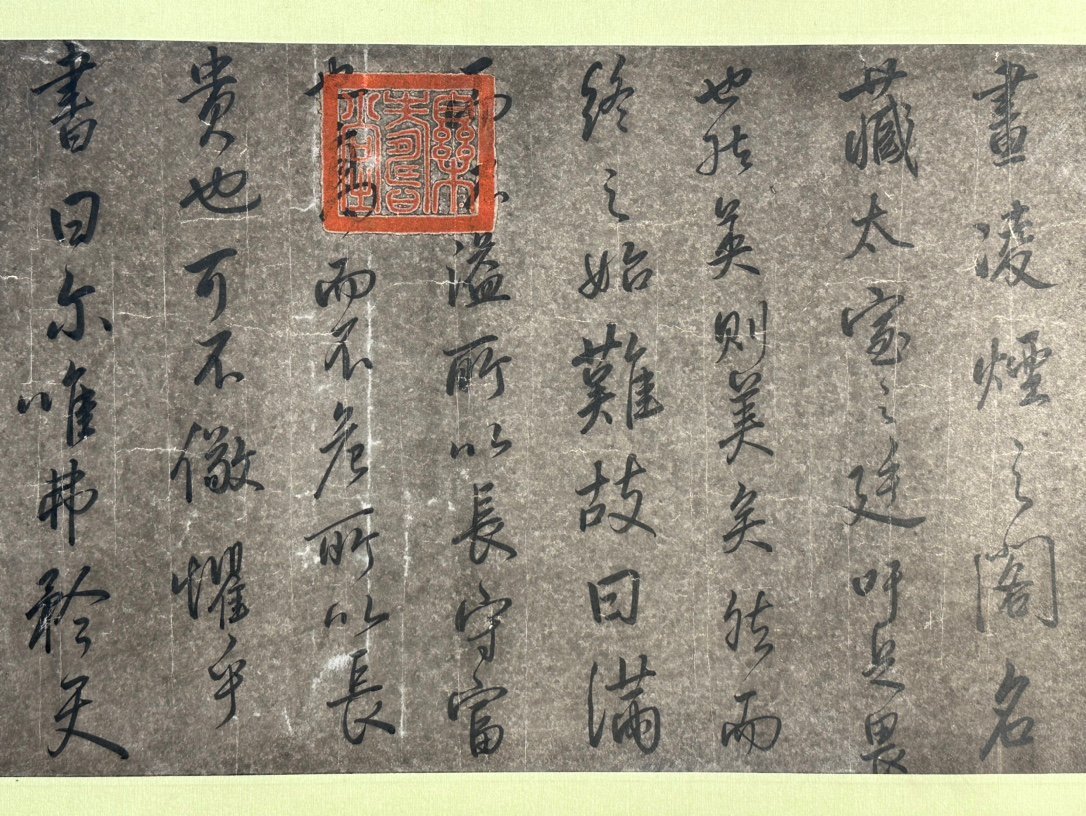 畫凌煙之閣名
藏太室之廷吁足畏
也然美則美矣然而
終之始難故曰滿
而不溢所以長守富
也高而不危所以長
貴也可不儆懼乎
書曰尔唯弗矜天